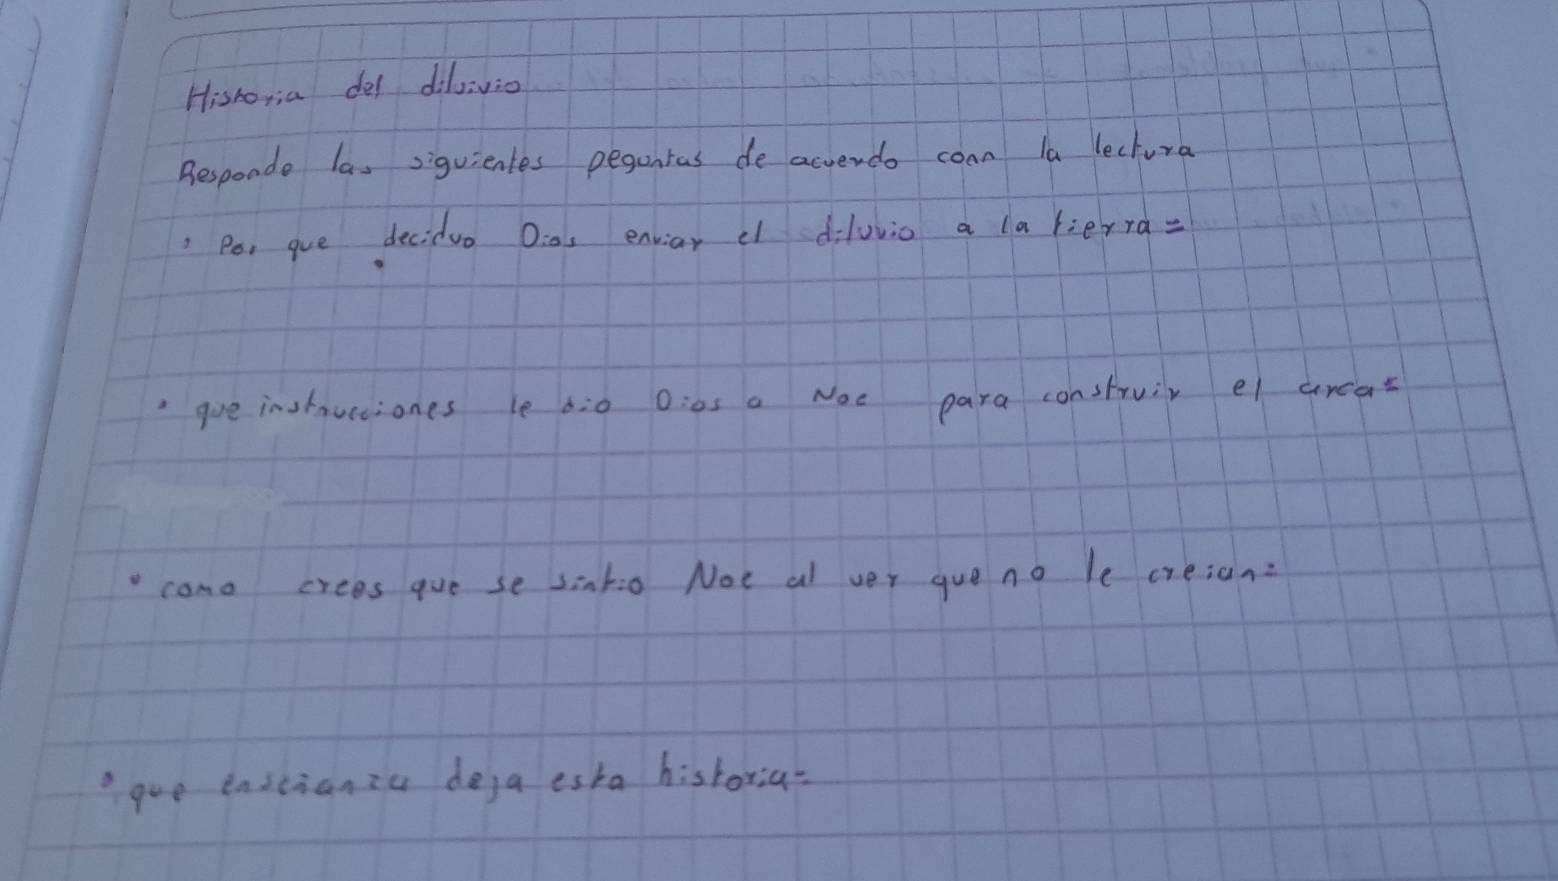 Historia del diluivio
Responde las siguientes peguntas de acuerdo conn la lectura
• Por que deciduo Dios enviar el diluvio a la tierra =
• que instrucciones le dio Dios a Noe para construir el arca =
• como crees que se sintio Noe al ver que no le creian =
• que enscianza deja esta historia =